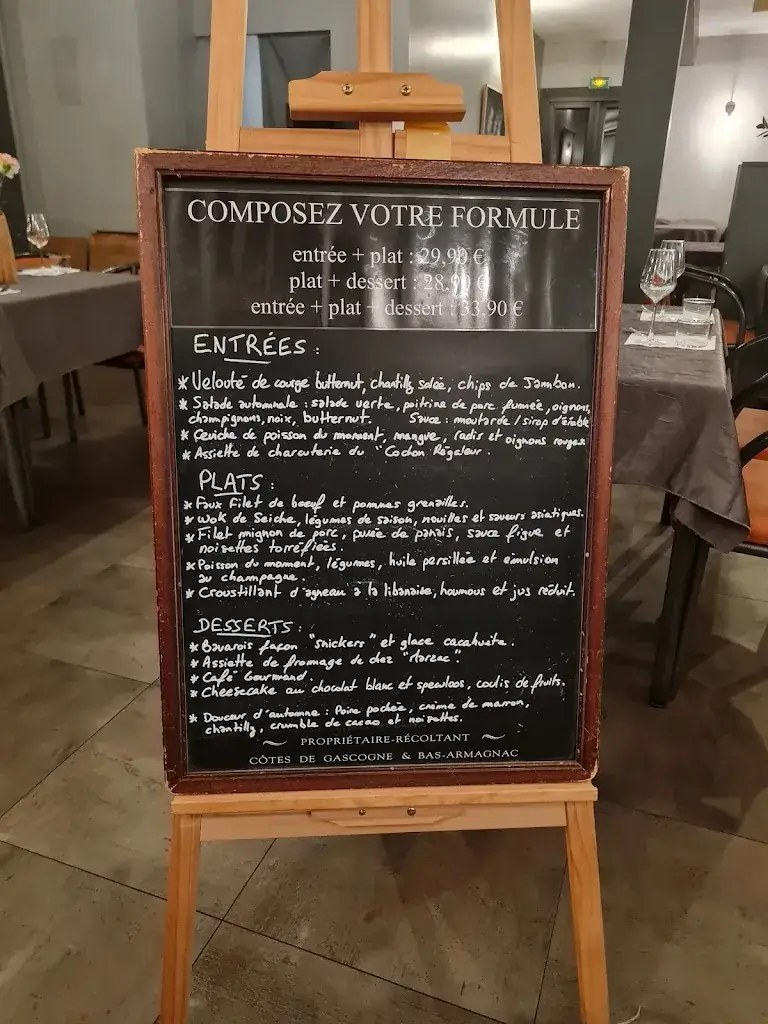 COMPOSEZ VOTRE FORMULE
entrée + plat : 29,90 €
plat + dessert : 28,90 €
entrée + plat + dessert : 33.90 €
ENTRÉES :
* Velouté de courge butternut, chantilly salée, chips de Jambon.
* Salade automnale : salade verte, poitrine de porc fumée, oignons,
champignons, noix, butternut. Sauce : moutarde / sirop d'érable
* Ceviche de poisson du moment, mangue, radis et oignons rouges
* Assiette de charcuterie du "Cochon Régaleur.
PLATS :
* Faux Filet de boeuf et pommes grenailles.
* Wok de Seiche, légumes de saison, nouilles et saveurs asiatiques.
* Filet mignon de porc, purée de panais, sauce figue et
noisettes torréfiées.
* Poisson du moment, légumes, huile persillée et émulsion
au champagne.
* Croustillant d'agneau à la libanaise, houmous et jus réduit.
DESSERTS :
* Bavarois façon "snickers" et glace cacahuète.
* Assiette de fromage de chez
* Café Gourmand.
* Cheesecake au chocolat blanc et speculoos, coulis de fruits.
* Douceur d'automne : Poire pochée, crème de marron,
chantilly, crumble de cacao et noisettes.
~ PROPRIÉTAIRE-RÉCOLTANT ~
CÔTES DE GASCOGNE & BAS-ARMAGNAC